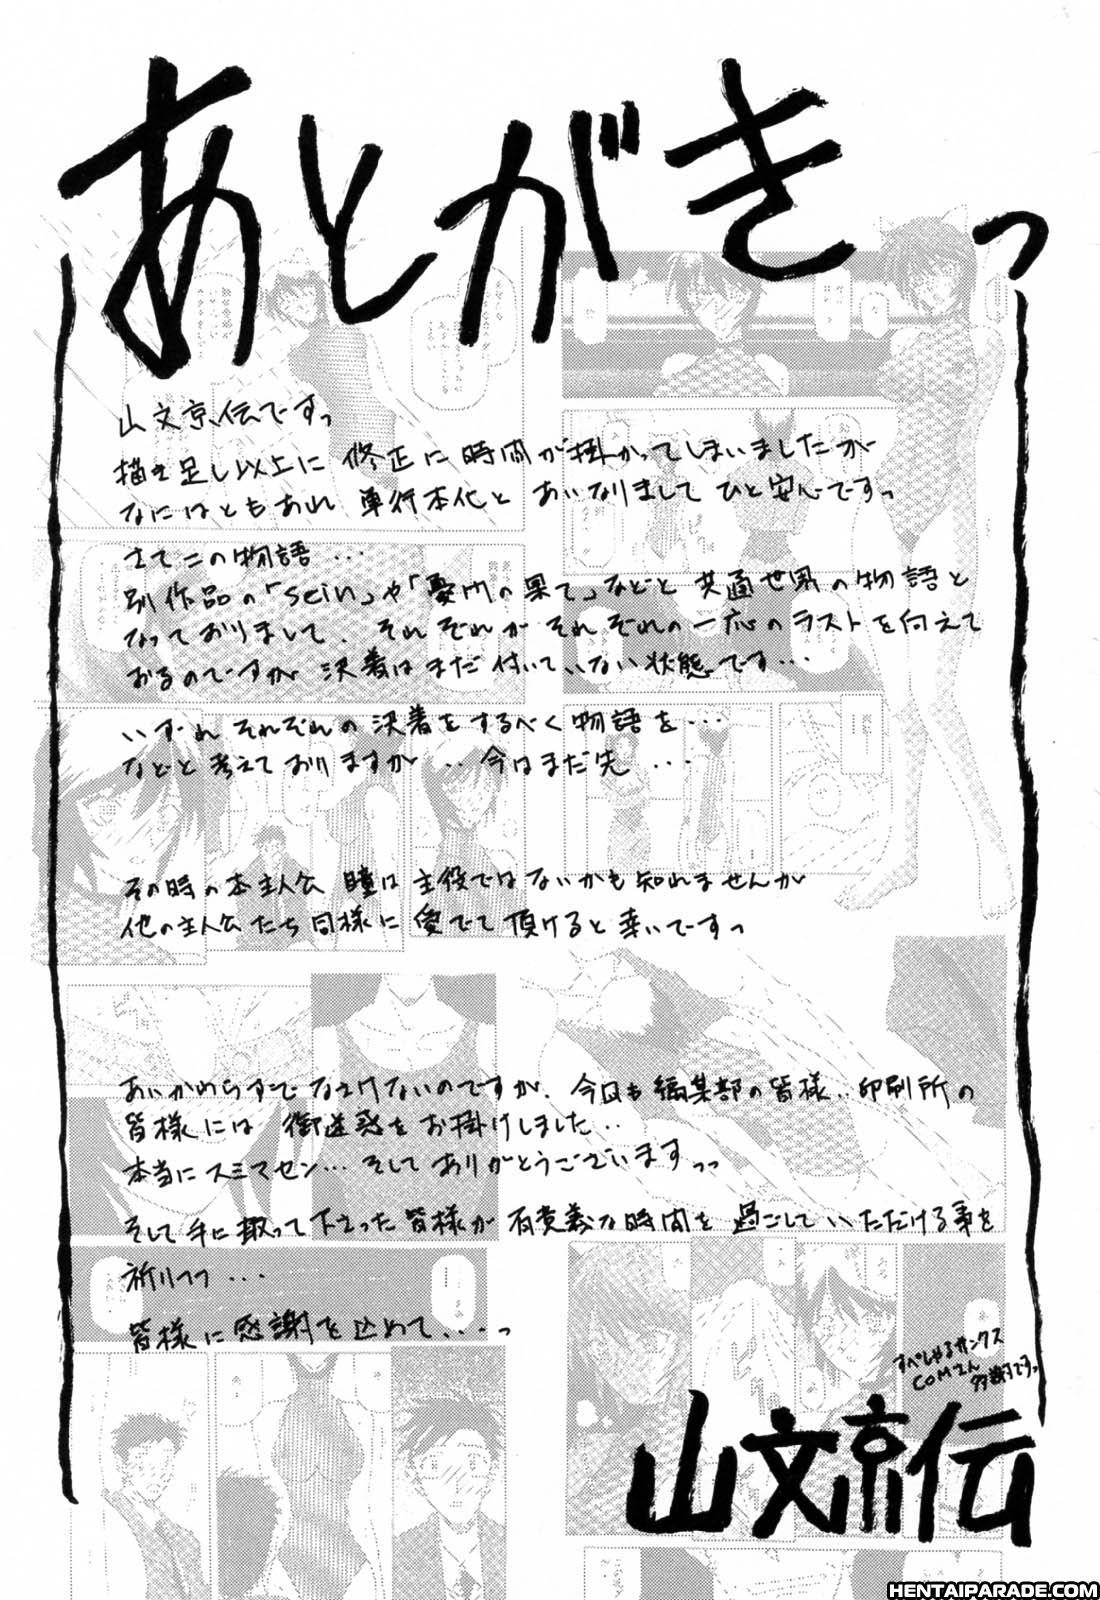 あとがきっ
山文京伝ですっ
描き足し以上に修正に時間が掛かってしまいましたが
なにはともあれ単行本化とあいなりましてひと安心ですっ
さてこの物語・・・
別作品の「sein」や「憂門の果て」などと共通世界の物語と
なっておりまして、それぞれがそれぞれの一応のラストを向えて
おるのですが決着はまだ付いていない状態です・・・
いずれそれぞれの決着をするべく物語を・・・
などと考えておりますが・・今はまだ先・・・
その時の本主人公 瞳は主役ではないかも知れませんが
他の主人公たち同様に愛でて頂けると幸いですっ
あいかわらずでなさけないのですが、今回も編集部の皆様、印刷所の
皆様には御迷惑をお掛けしました・・
本当にスミマセン・・・そしてありがとうございますっっ
そして手に取って下さった皆様が有意義な時間を過ごしていただける事を
祈りつつ・・・
皆様に感謝を込めて・・・っ
すぺしゃるサンクス
COMさん
多謝ですっ
山文京伝
HENTAIPARADE.COM